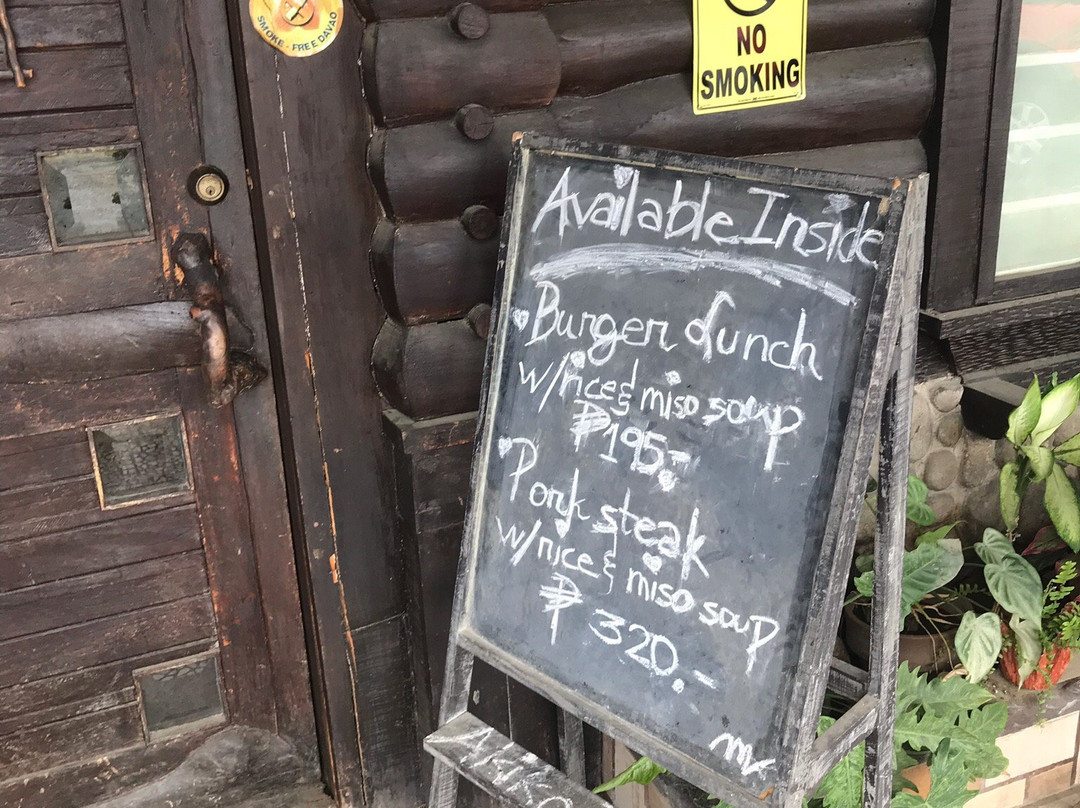 SMOKE-FREE DAVAO
NO
SMOKING
Available Inside
Burger Lunch
w/rice & miso soup
₱195.-
Pork steak
w/rice & miso soup
₱
320.-